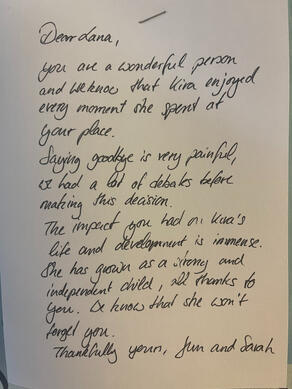 Dear Lana,
you are a wonderful person
and we know that Kira enjoyed
every moment she spent at
your place.
Saying goodbye is very painful,
we had a lot of debates before
making this decision.
The impact you had on Kira's
life and development is immense.
She has grown as a strong and
independent child, all thanks to
you. We know that she won't
forget you.
Thankfully yours, Jun and Sarah